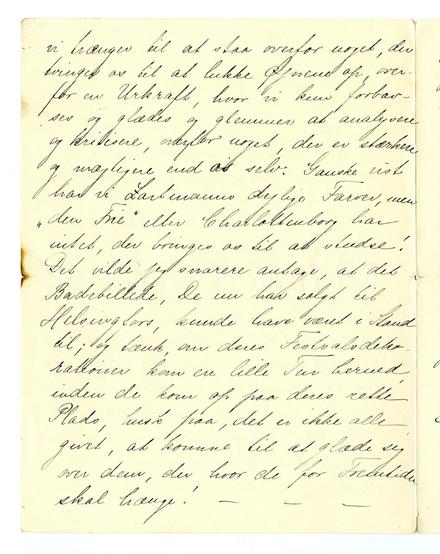 vi trænger til at staa overfor noget, der
tvinger os til at lukke Øjnene op, over-
for en Urkraft, hvor vi kun forbav-
ses og glædes og glemmer at analysere
og kritisere, overfor noget, der er stærkere
og mægtigere end os selv. Ganske vist
har vi Zartmanns dejlige Farver, men
„den Frie" eller Charlottenborg har
intet, der bringes os til at studse!
Det vilde jeg snarere antage, at det
Badebillede, De nu har solgt til
Helsingfors, kunde have været i Stand
til; og tænk, om deres Festsalsdeko-
rationer kom en lille Tur herned,
inden de kom op paa deres rette
Plads, husk paa, det er ikke alle
givet, at komme til at glæde sig
over dem, der, hvor de for Fremtiden
skal hænge! — — —